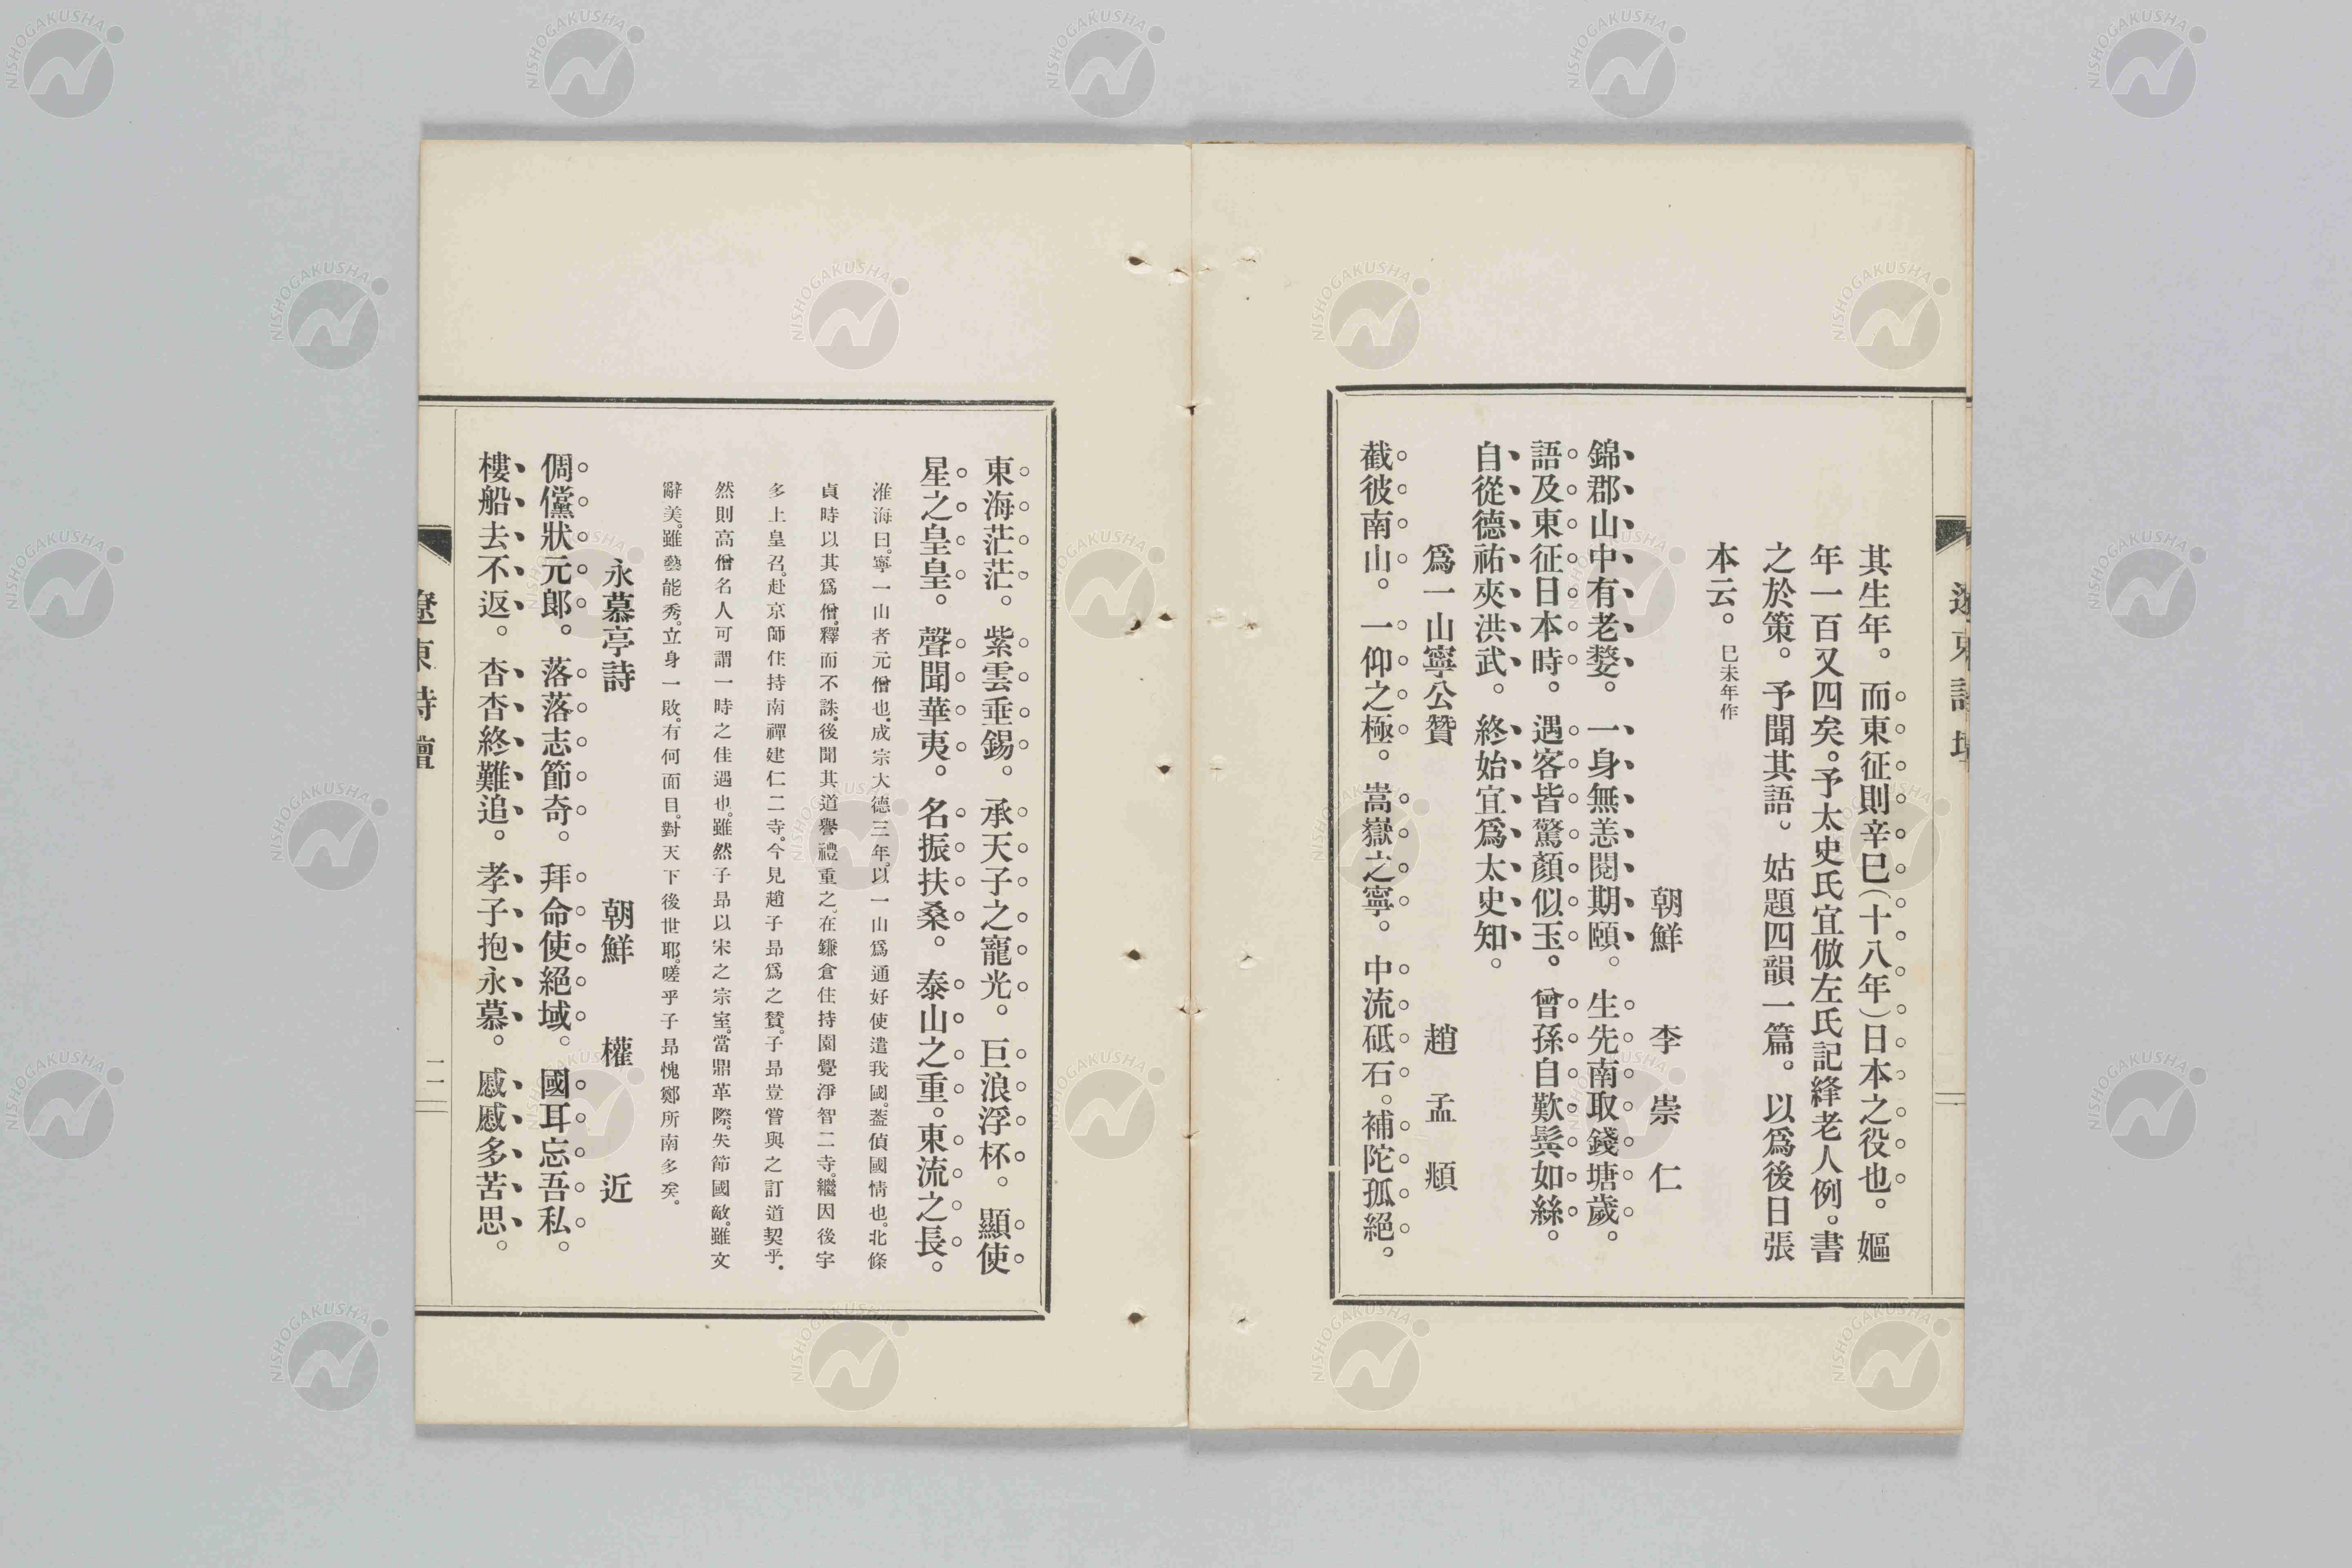 其生年。而東征則辛巳(十八年)日本之役也。嫗
年一百又四矣。予太史氏宜倣左氏記絳老人例。書
之於策。予聞其語。姑題四韻一篇。以爲後日張
本云。巳未年作
朝鮮 李崇仁
錦郡山中有老嫠。一身無恙閱期頤。生先南取錢塘歲。
語及東征日本時。遇客皆驚顏似玉。曾孫自歎鬓如絲。
自從德祐夾洪武。終始宜爲太史知。
爲一山寧公贊 趙孟頫
截彼南山。一仰之極。嵩嶽之寧。中流砥石。補陀孤絕。
東海茫茫。紫雲垂錫。承天子之寵光。巨浪浮杯。顯使
星之皇皇。聲聞華夷。名振扶桑。泰山之重。東流之長。
淮海曰。寧一山者元僧也。成宗大德三年。以一山爲通好使遣我國。蓋偵國情也。北條
貞時以其爲僧。釋而不誅。後聞其道譽禮重之。在鎌倉住持圓覺淨智二寺。繼因後宇
多上皇召。赴京師住持南禪建仁二寺。今見趙子昂爲之贊。子昂豈嘗與之訂道契乎。
然則高僧名人可謂一時之佳遇也。雖然子昂以宋之宗室。當鼎革際。失節國敵。雖文
辭美。雖藝能秀。立身一敗。有何面目。對天下後世耶。嗟乎子昂愧鄭所南多矣。
永慕亭詩 朝鮮 權近
倜儻狀元郎。落落志節奇。拜命使絕域。國耳忘吾私。
樓船去不返。杳杳終難追。孝子抱永慕。慼慼多苦思。
遼東詩壇
二一
NISHOGAKUSHA